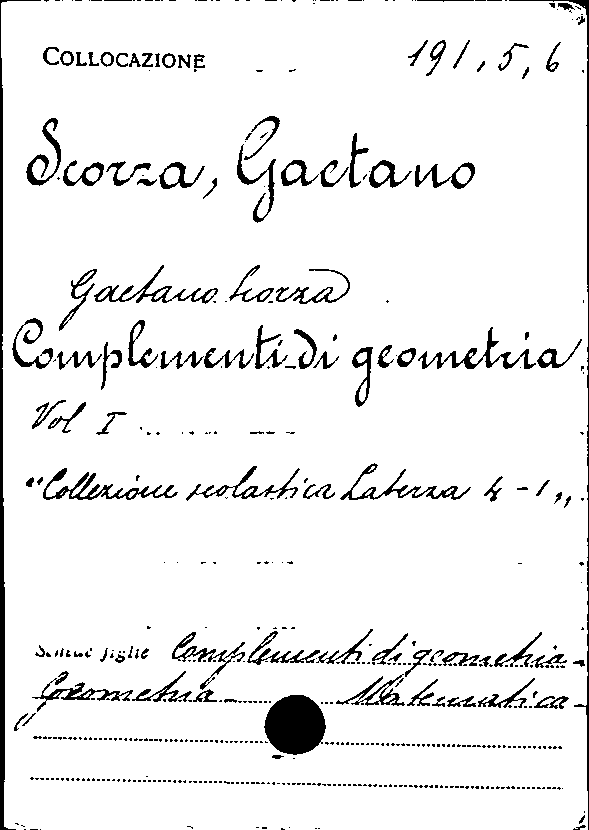 COLLOCAZIONE 191, 5, 6
Scorza, Gaetano
Gaetano Scorza
Complementi di geometria
Vol I
"Collezione scolastica Laterza 4-1"
Schede figlie Complementi di geometria-
Geometria- Matematica-